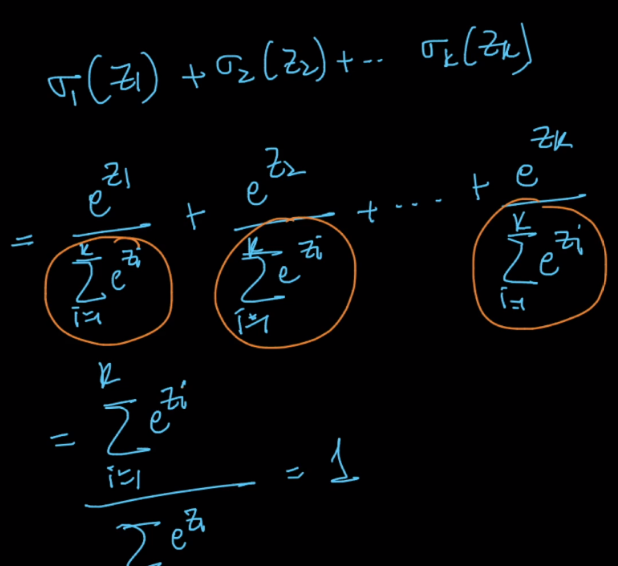 σ₁(z₁) + σ₂(z₂) + ·· σₖ(zₖ)
= e^{z₁} / ∑_{i=1}^{k} e^{zᵢ} + e^{z₂} / ∑_{i=1}^{k} e^{zᵢ} + ···· + e^{zₖ} / ∑_{i=1}^{k} e^{zᵢ}
= ∑_{i=1}^{k} e^{zᵢ} / ∑ e^{zᵢ} = 1